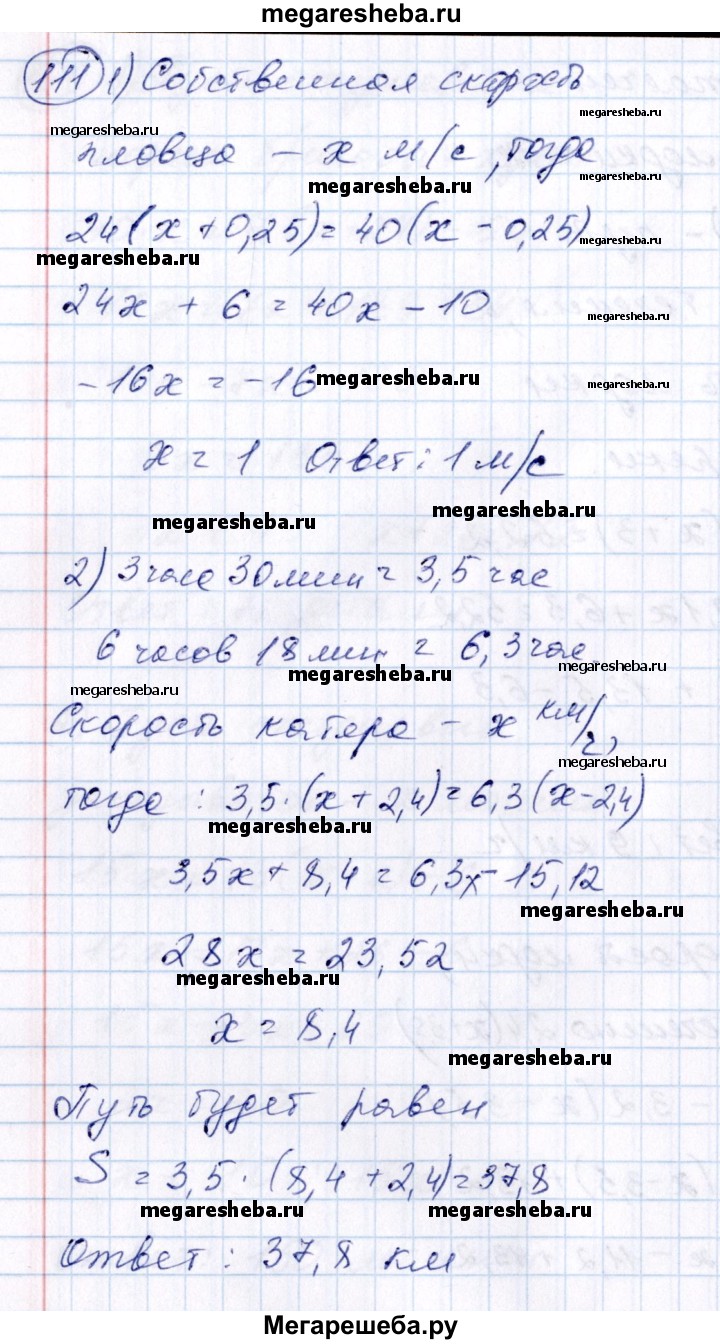 megaresheba.ru
111 1) Собственная скорость
megaresheba.ru
megaresheba.ru
пловца – x м/с, тогда
megaresheba.ru
megaresheba.ru
24(x + 0,25) = 40(x - 0,25)
megaresheba.ru
megaresheba.ru
24x + 6 = 40x - 10
megaresheba.ru
-16x = -16
megaresheba.ru
megaresheba.ru
x = 1 Ответ: 1 м/с
megaresheba.ru
megaresheba.ru
2) 3 часа 30 мин = 3,5 час
6 часов 18 мин = 6,3 час
megaresheba.ru
megaresheba.ru
megaresheba.ru
Скорость катера – x км/ч,
megaresheba.ru
тогда: 3,5·(x + 2,4) = 6,3(x - 2,4)
megaresheba.ru
3,5x + 8,4 = 6,3x - 15,12
megaresheba.ru
28x = 23,52
megaresheba.ru
x = 8,4
megaresheba.ru
Путь будет равен
S = 3,5 · (8,4 + 2,4) = 37,8
megaresheba.ru
megaresheba.ru
Ответ: 37,8 км
Мегарешеба.ру